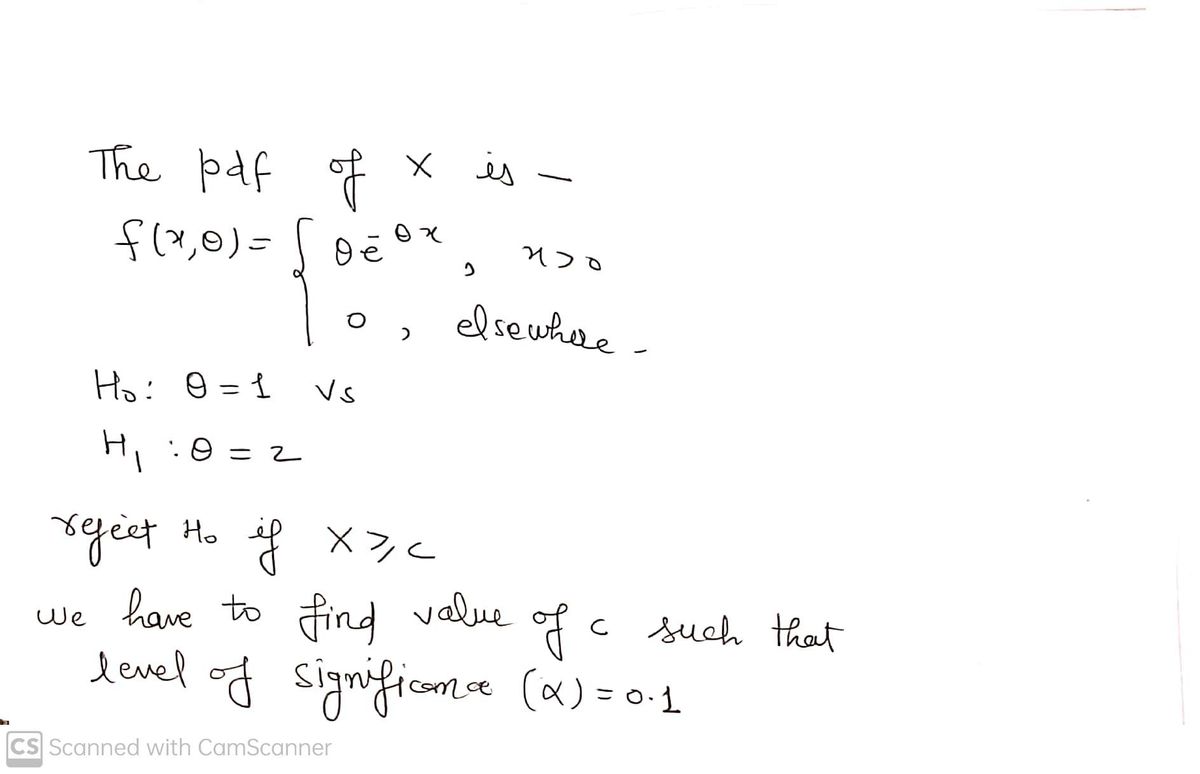 The pdf of x is –
f(x,θ) = { θe^-θx , x>0
0 , elsewhere -
H₀: θ = 1 vs
H₁ : θ = 2
reject H₀ if X ≥ c
we have to find value of c such that
level of significance (α) = 0.1
CS Scanned with CamScanner